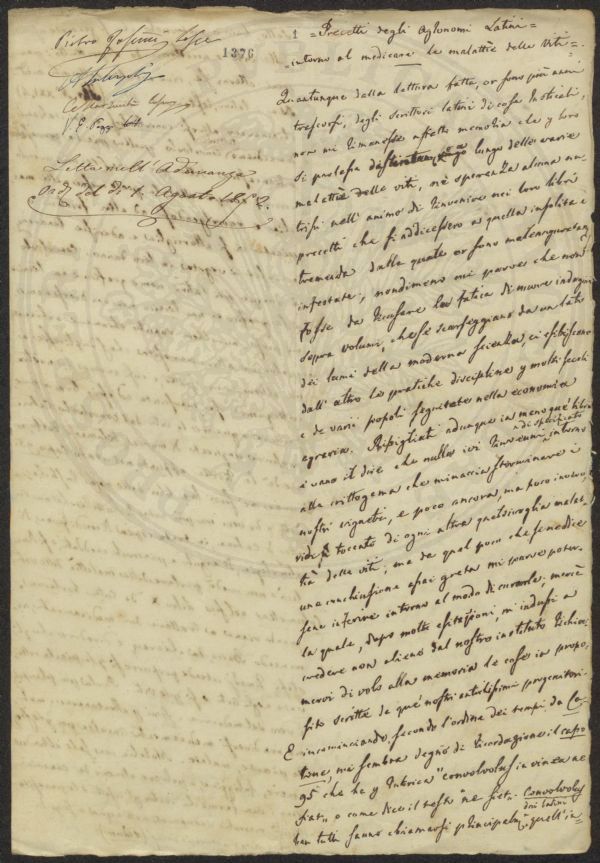 Pietro
1376
Letta nell' Adunanza
ord. del dì 1. Agosto 1852
1 = Precetti degli Agronomi Latini =
= intorno al medicare le malattie delle Viti =
Quantunque dalla lettura fatta, or sono più anni
trascorsi, degli scrittori latini di cose rusticali,
non mi rimanesse affatto memoria che p loro
si parlasse lungo delle varie
malattie delle viti, nè speranza alcuna nu
trissi nell' animo di rinvenire nei loro libri
precetti che s'addicessero a quella insolita e
tremenda dalla quale or sono
infestate, nondimeno mi parve che non
fosse da ricusare la fatica di nuove indagini
sopra volumi, che se scarseggiano da un lato
dei lumi della moderna scienza, ci esibiscono
dall' altro le pratiche discipline p molti secoli
e da varii popoli seguitate nella economia
agraria. Ripigliati adunque in meno que' libri
è vano il dire che nulla ivi rinvenni intorno
di specificato
alla crittogama che minaccia sterminare i
nostri vigneti, e poco ancora, ma poco
vidi toccato di ogni altra qualsivoglia malat
tia delle viti; ma da quel poco che se ne dice
una conchiusione assai grata mi parve poter
sene inferire intorno al modo di curarla, mercè
la quale, dopo molte esitazioni, m' indussi a
credere non alieno dal nostro instituto richia
marvi di volo alla memoria le cose in propo
sito scritte da que' nostri antichissimi progenitori.
E incominciando secondo l'ordine dei tempi da Ca-
tone, mi sembra degno di ricordazione il capo
95 che ha p rubrica "convolvolus in vinea ne
siet" o come dice il testo "ne siet". Convolvolus
dai latini
ben tutti sanno chiamarsi principalm. quell' in-